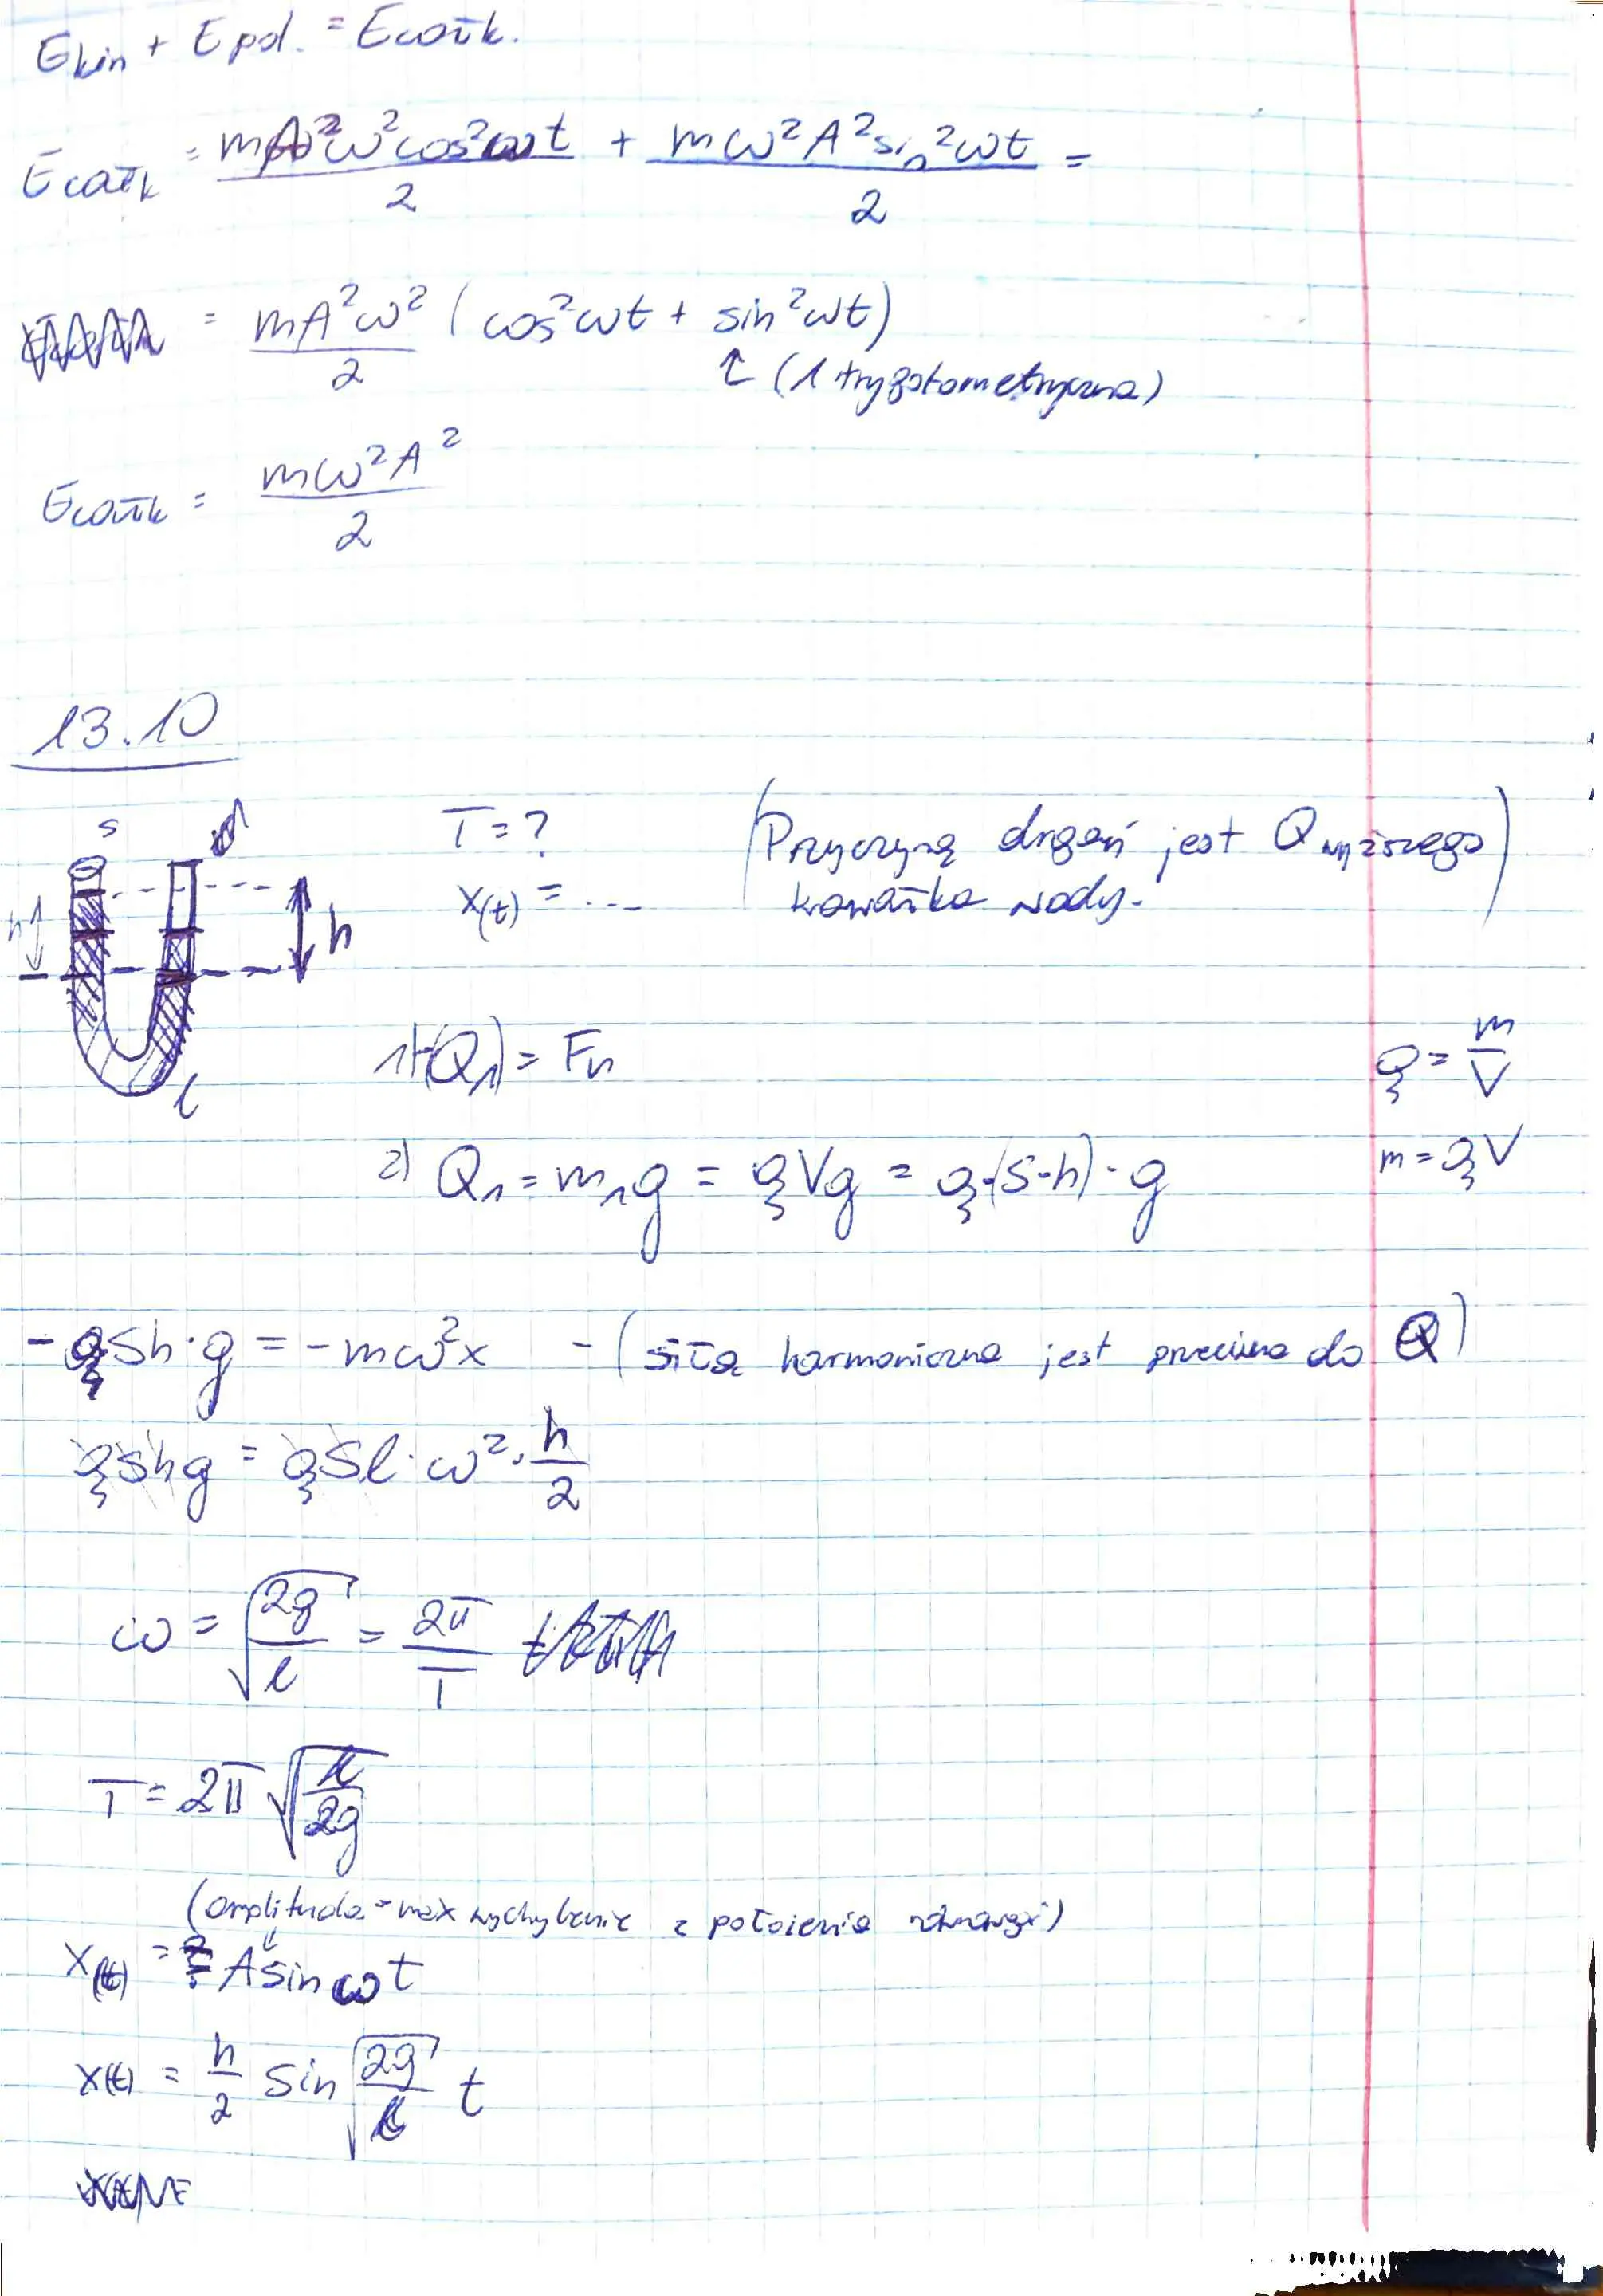 Ekin + Epot. = Ecałk.
Ecałk = mA²ω²cos²ωt/2 + mω²A²sin²ωt/2 =
= mA²ω²/2 (cos²ωt + sin²ωt)
↑ (1 trygotometryczna)
Ecałk = mω²A²/2
13.10
s
T = ?
x(t) = ...
(Przyczyną drgań jest Q wyższego
kawałka wody.)
h
h
l
1) (Q₁) = Fn
ρ = m/V
2) Q₁ = m₁g = ρVg = ρ·(S·h)·g
m = ρV
- ρSh·g = -mω²x - (siła harmoniczna jest przeciwna do Q)
ρShg = ρSl·ω²·h/2
ω = √(2g/l) = 2π/T
T = 2π√(l/2g)
(amplituda = max wychylenie z położenia równowagi)
x(t) = A sin ωt
x(t) = h/2 sin √(2g/l) t